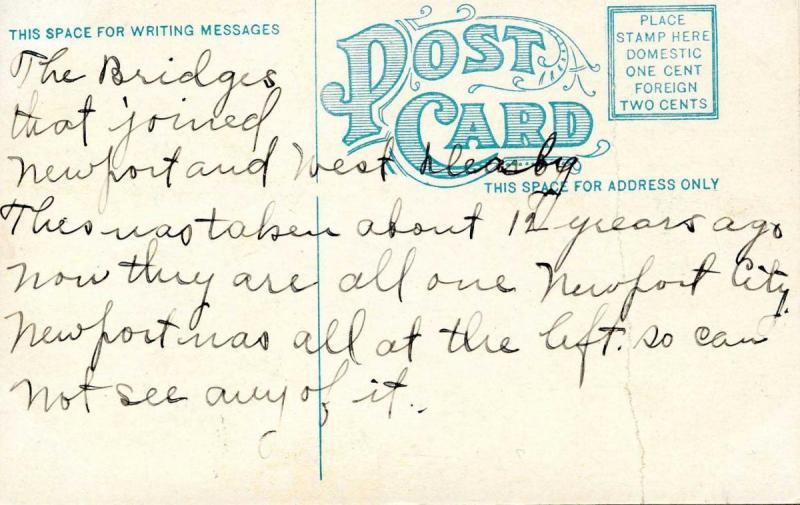 THIS SPACE FOR WRITING MESSAGES
POST CARD
PLACE
STAMP HERE
DOMESTIC
ONE CENT
FOREIGN
TWO CENTS
THIS SPACE FOR ADDRESS ONLY
The Bridges
that joined
Newport and West Derby
This was taken about 12 years ago
Now they are all one Newport City.
Newport was all at the left. so can
not see any of it.